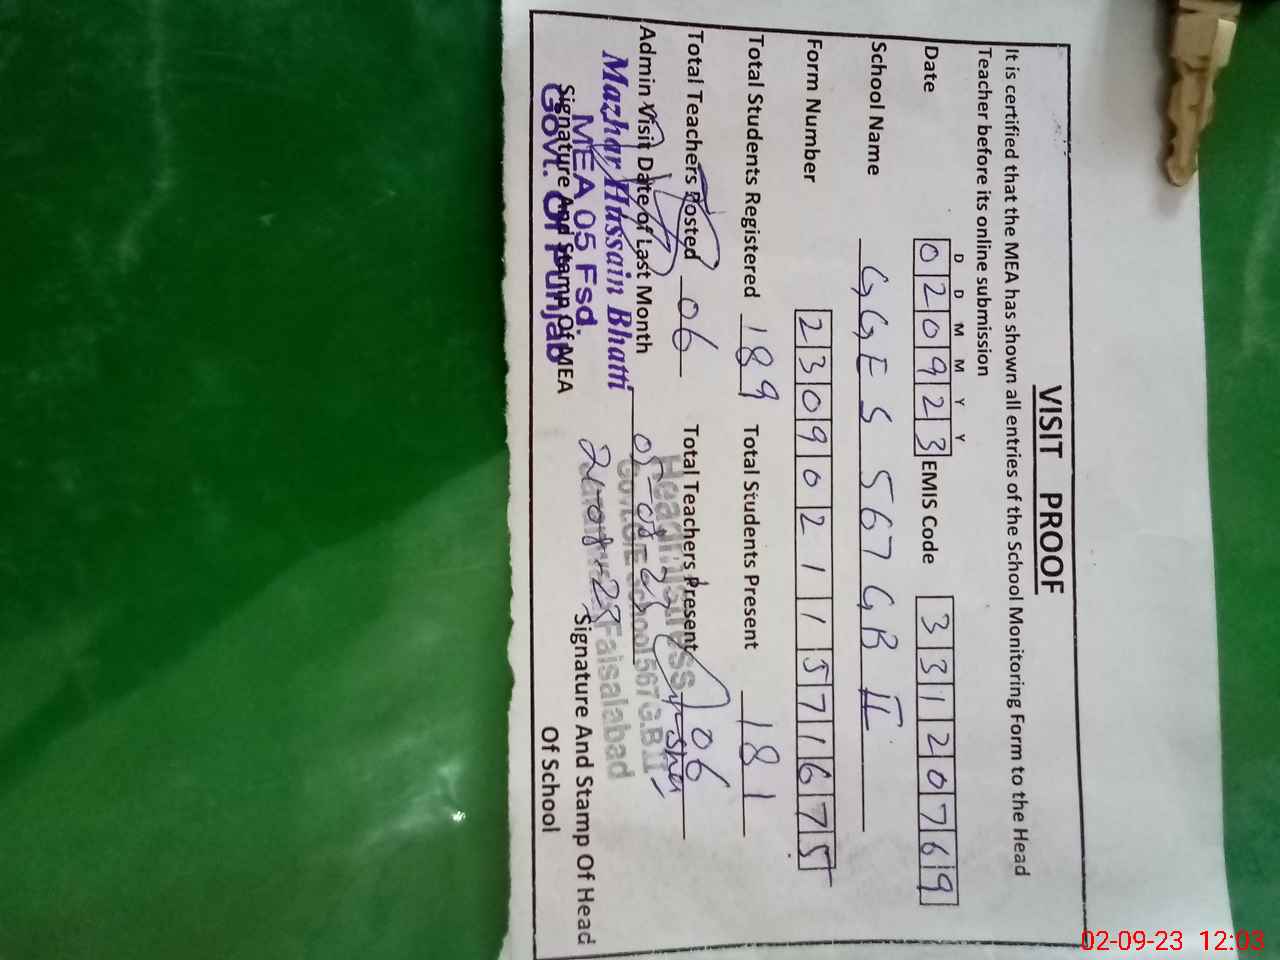 VISIT PROOF
It is certified that the MEA has shown all entries of the School Monitoring Form to the Head
Teacher before its online submission
D D M M Y Y
Date 020923 EMIS Code 33120769
School Name GGES 567 GB II
Form Number 230902111571675
Total Students Registered 189 Total Students Present 181
Total Teachers Posted 06 Total Teachers Present 06
Admin Visit Date of Last Month
Mazhar Hussain Bhatti
MEA 05 Fsd.
Govt. Of Punjab
Signature And Stamp Of MEA
Headmistress
School 567 G.B II
Faisalabad
Signature And Stamp Of Head
Of School
02-09-23 12:03